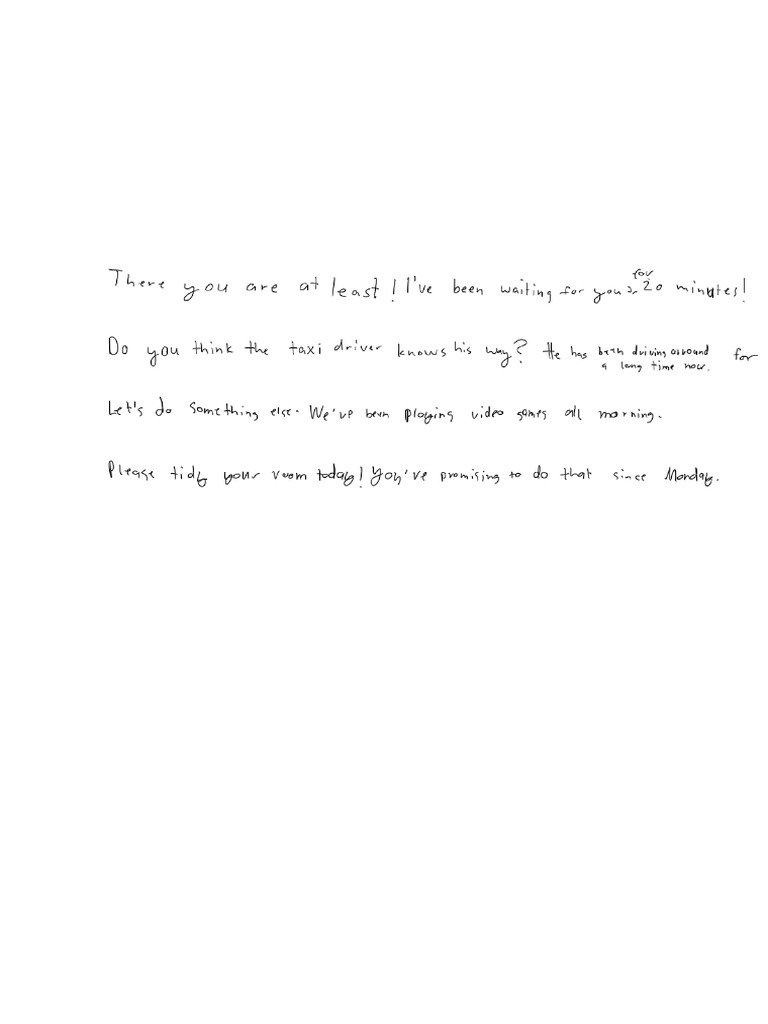 There you are at least! I've been waiting for you for 20 minutes!
Do you think the taxi driver knows his way? He has been driving around for
a long time now.
Let's do something else. We've been playing video games all morning.
Please tidy your room today! You've promising to do that since Monday.